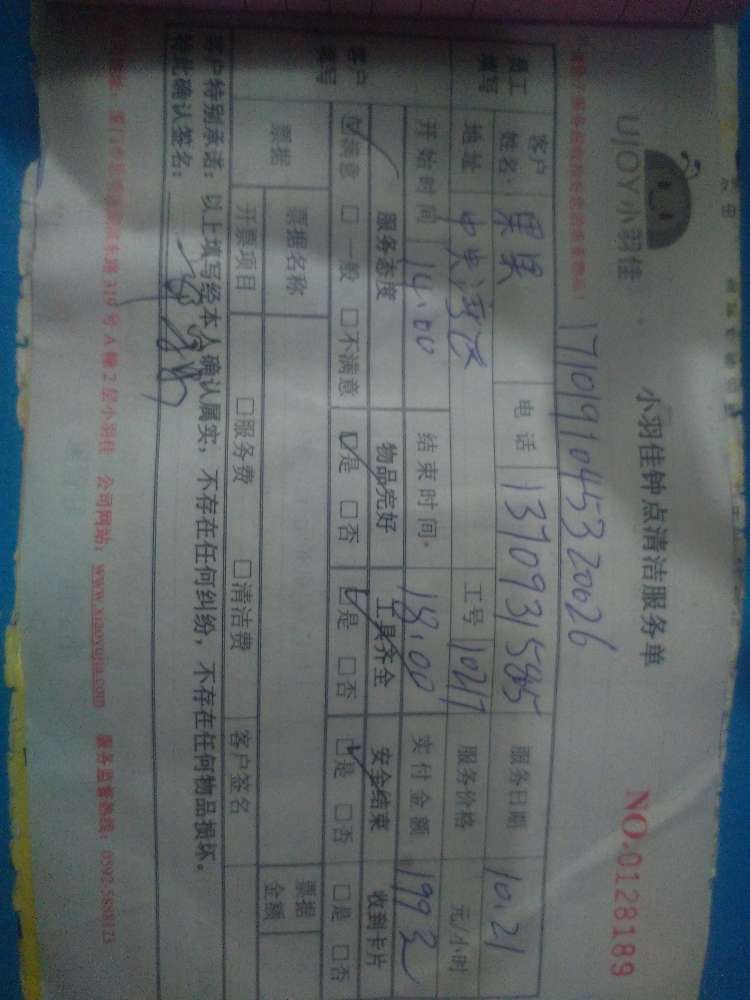 UJOY小羽佳
小羽佳钟点清洁服务单
NO.0128189
1710191045320026
员工填写 客户姓名: 果果 电话 服务日期 10.21
地址 中央湾区 工号 10217 服务价格 元/小时
开始时间 14:00 结束时间 18:00 实付金额 199元
客户填写 服务态度 物品完好 工具齐全 安全结束 收到卡片
☑满意 □一般 □不满意 ☑是 □否 ☑是 □否 ☑是 □否 □是 □否
票据 票据名称 票据金额
开票项目 □服务费 □清洁费 客户签名
客户特别承诺:以上填写经本人确认属实,不存在任何纠纷,不存在任何物品损坏。
特此确认签名:
319号A幢2层小羽佳 公司网站:www.xiaoyujia.com 服务监督热线:0592-5808123